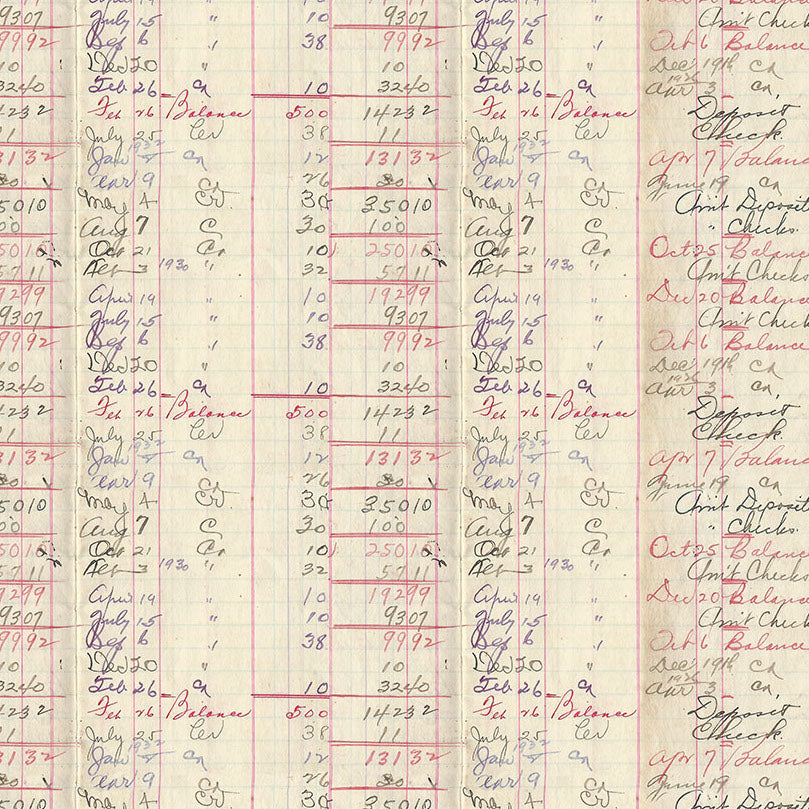 9307 July 15 " 10 9307 July 15 " Am't Check
9992 Sep 6 " 38 9992 Sep 6 " Oct 6 Balance
10 Dec 20 " 10 Dec 20 " Dec 19th Cr
3240 Feb 26 Cr 10 3240 Feb 26 Cr 1936 Apr 3 Cr,
14232 Feb 26 Balance 500 14232 Feb 26 Balance Deposit
11 July 25 Cer 38 11 July 25 Cer Check
13132 Jan 1932 Cr 12 13132 Jan 1932 Cr Apr 7 Balanc
9 26 9 June 19 Cr
35010 May 4 Cr 38 35010 May 4 Cr Am't Deposit
100 Aug 7 C 30 100 Aug 7 C " Checks
25010 Oct 21 Cr 10 25010 Oct 21 Cr Oct 25 Balance
5711 3 1930 " 32 5711 3 1930 " Am't Checks
19299 April 19 " 10 19299 April 19 " Dec 20 Balance
9307 July 15 " 10 9307 July 15 " Am't Check
9992 Sep 6 " 38 9992 Sep 6 " Oct 6 Balance
10 Dec 20 " 10 Dec 20 " Dec 19th Cr
3240 Feb 26 Cr 10 3240 Feb 26 Cr 1936 Apr 3 Cr,
14232 Feb 26 Balance 500 14232 Feb 26 Balance Deposit
11 July 25 Cer 38 11 July 25 Cer Check
13132 Jan 1932 Cr 12 13132 Jan 1932 Cr Apr 7 Balanc
9 26 9 June 19 Cr
35010 May 4 Cr 38 35010 May 4 Cr Am't Deposit
100 Aug 7 C 30 100 Aug 7 C " Checks
25010 Oct 21 Cr 10 25010 Oct 21 Cr Oct 25 Balance
5711 3 1930 " 32 5711 3 1930 " Am't Checks
19299 April 19 " 10 19299 April 19 " Dec 20 Balance
9307 July 15 " 10 9307 July 15 " Am't Check
9992 Sep 6 " 38 9992 Sep 6 " Oct 6 Balance
10 Dec 20 " 10 Dec 20 " Dec 19th Cr
3240 Feb 26 Cr 10 3240 Feb 26 Cr 1936 Apr 3 Cr,
14232 Feb 26 Balance 500 14232 Feb 26 Balance Deposit
11 July 25 Cer 38 11 July 25 Cer Check
13132 Jan 1932 Cr 12 13132 Jan 1932 Cr Apr 7 Balanc
9 26 9 June 19 Cr
35010 May 4 Cr 38 35010 May 4 Cr Am't Deposit